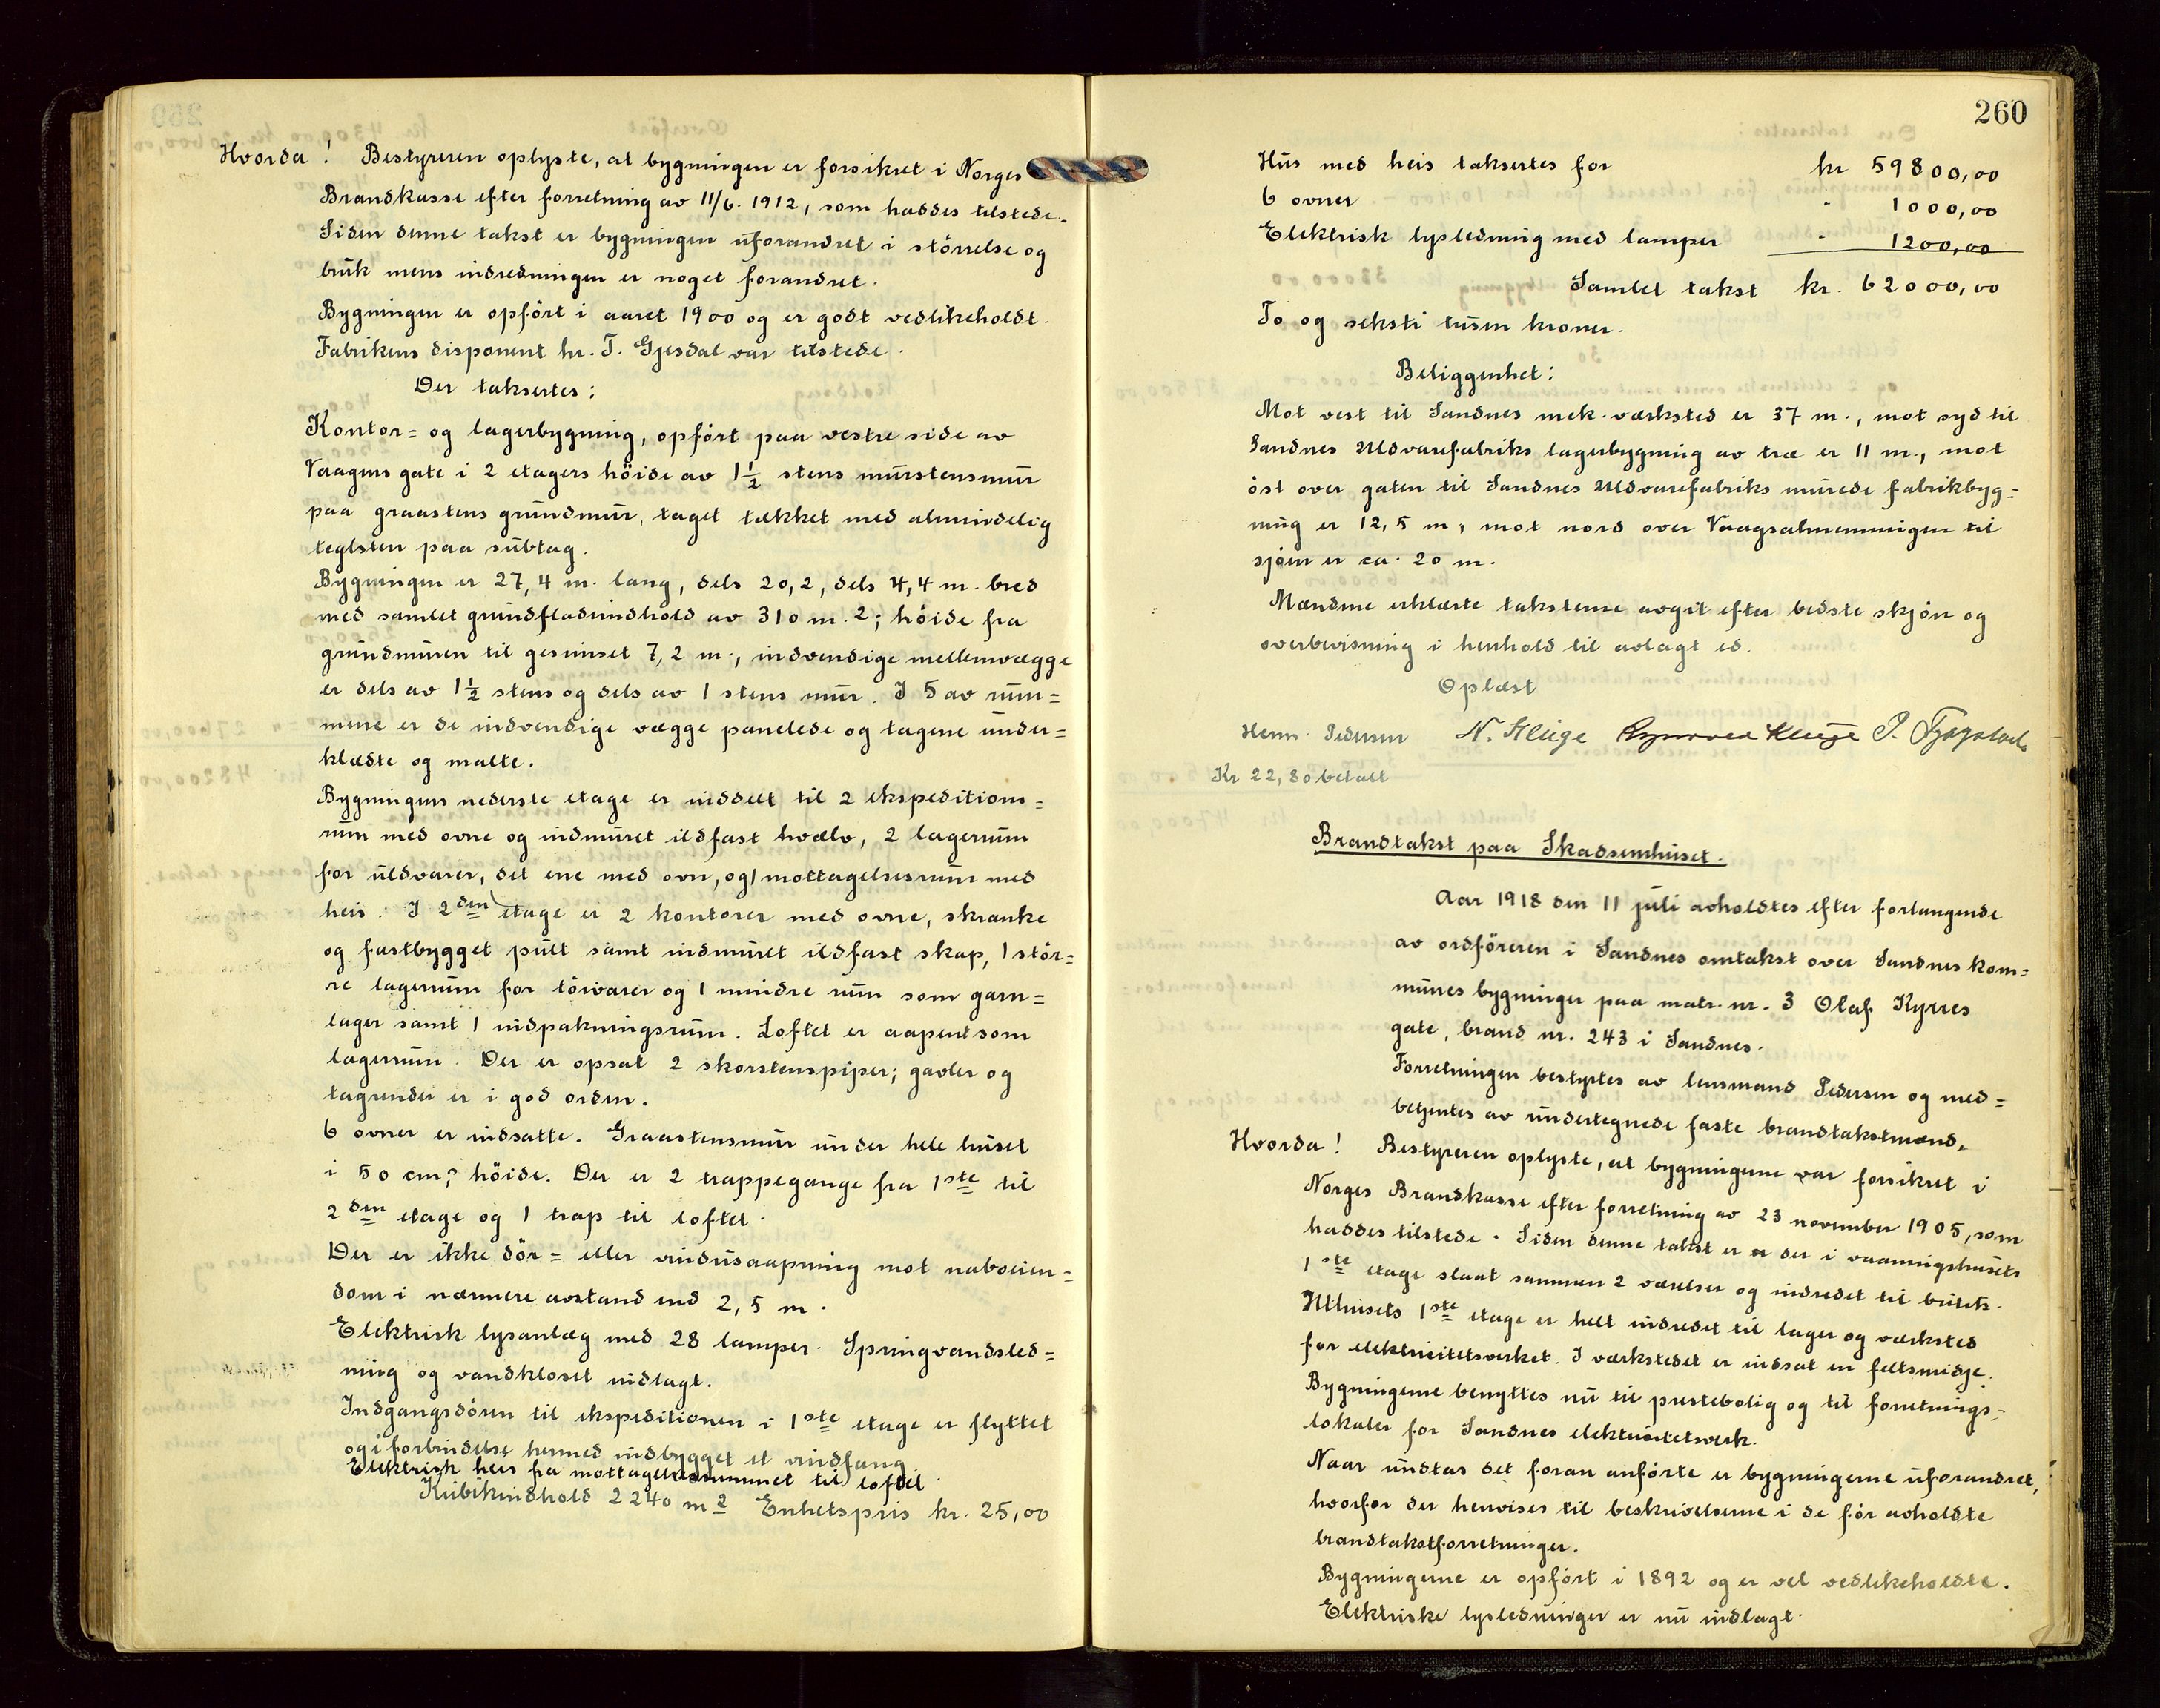 Hvorda! Bestyreren oplyste, at bygningen er forsikret i Norges
Brandkasse efter forretning av 11/6. 1912, som haddes tilstede.
Siden denne takst er bygningen uforandret i størrelse og
bruk mens indredningen er noget forandret.
Bygningen er opført i aaret 1900 og er godt vedlikeholdt.
Fabrikens disponent hr. T. Gjesdal var tilstede.
Der taksertes:
Kontor= og lagerbygning, opført paa vestre side av
Vaagens gate i 2 etagers høide av 1½ stens murstensmur
paa graastens grundmur, taget tækket med almindelig
teglsten paa subtag.
Bygningen er 27,4 m. lang, dels 20,2, dels 4,4 m. bred
med samlet grundfladeindhold av 310 m.2; høide fra
grundmuren til gesimset 7,2 m., indvendige mellemvægge
er dels av 1½ stens og dels av 1 stens mur. I 5 av rum=
mene er de indvendige vægge panelede og tagene under=
klædte og malte.
Bygningens nederste etage er inddelt til 2 ekspeditions=
rum med ovne og indmuret ildfast hvælv, 2 lagerrum
for uldvarer, det ene med ovn, og 1 mottagelsesrum med
heis. I 2den etage er 2 kontorer med ovne, skranke
og fastbygget pult samt indmuret ildfast skap, 1 stør=
re lagerrum for tøivarer og 1 mindre rum som garn=
lager samt 1 indpakningsrum. Loftet er aapent som
lagerrum. Der er opsat 2 skorstenspiper; gavler og
tagrender er i god orden.
6 ovner er indsatte. Graastensmur under hele huset
i 50 cm; høide. Der er 2 trappegange fra 1ste til
2den etage og 1 trap til loftet.
Der er ikke dør= eller vindusaapning mot naboeien=
dom i nærmere avstand end 2,5 m.
Elektrisk lysanlæg med 28 lamper. Springvandsled=
ning og vandkloset indlagt.
Indgangsdøren til ekspeditionen i 1ste etage er flyttet
og i forbindelse hermed indbygget et vindfang.
Elektrisk heis fra mottagelsesrummet til loftet.
Kubikindhold 2240 m2 Enhetspris kr. 25,00
260
Hus med heis taksertes for kr 59800,00
6 ovner " 1000,00
Elektrisk lysledning med lamper " 1200,00
Samlet takst kr. 62000,00
To og seksti tusen kroner.
Beliggenhet:
Mot vest til Sandnes mek. værksted er 37 m., mot syd til
Sandnes Uldvarefabriks lagerbygning av træ er 11 m., mot
øst over gaten til Sandnes Uldvarefabriks murede fabrikbyg=
ning er 12,5 m, mot nord over Vaagsalmenningen til
sjøen er ca. 20 m.
Mændene erklærte taksterne avgit efter bedste skjøn og
overbevisning i henhold til avlagt ed.
Oplæst
Herm. Pedersen N. Kluge Kluge P.
Kr 22,80 betalt
Brandtakst paa Skadsemhuset.
Aar 1918 den 11 juli avholdtes efter forlangende
av ordføreren i Sandnes omtakst over Sandnes kom=
munes bygninger paa matr. nr. 3 Olaf Kyrres
gate, brand nr. 243 i Sandnes.
Forretningen bestyrtes av lensmand Pedersen og med=
betjentes av undertegnede faste brandtakstmænd.
Hvorda! Bestyreren oplyste, at bygningerne var forsikret i
Norges Brandkasse efter forretning av 23 november 1905, som
haddes tilstede. Siden denne takst er der i vaaningshusets
1ste etage slaat sammen 2 værelser og indredet til butik.
Uthusets 1ste etage er helt indredet til lager og værksted
for elektricitetsverket. I værkstedet er indsat en feltsmidje.
Bygningerne benyttes nu til prestebolig og til forretnings=
lokaler for Sandnes elektricitetsverk.
Naar undtas det foran anførte er bygningerne uforandret,
hvorfor der henvises til beskrivelserne i de før avholdte
brandtakstforretninger.
Bygningerne er opført i 1892 og er vel vedlikeholdte.
Elektriske lysledninger er nu indlagt.